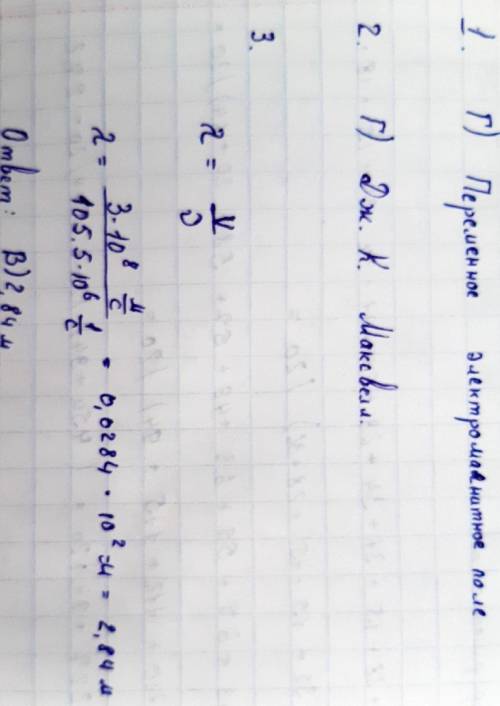 1. Г) Переменное электромагнитное поле
2. Г) Дж. К. Максвелл.
3.
λ = V/ν
λ = 3·10⁸ м/с / 105.5·10⁶ 1/с = 0,0284 · 10² м = 2,84 м
Ответ: В) 2,84 м